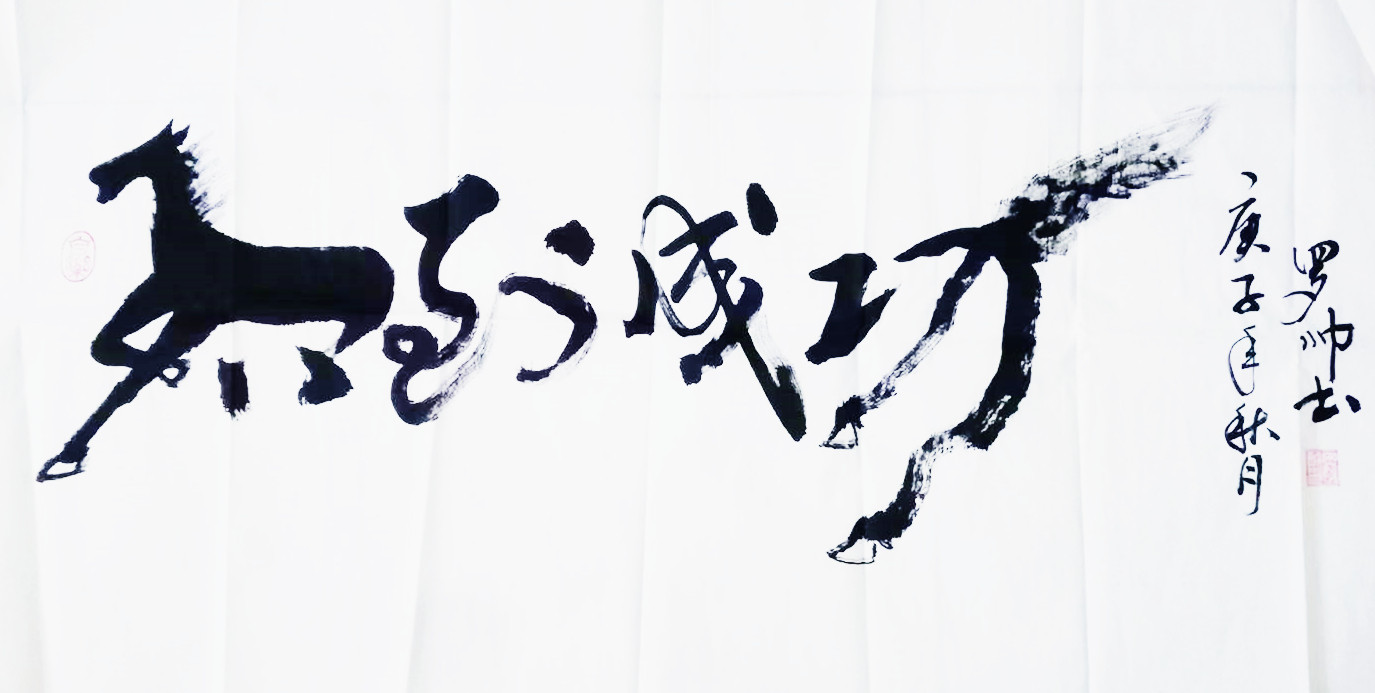 馬到成功
庚子年秋月
罗帅书